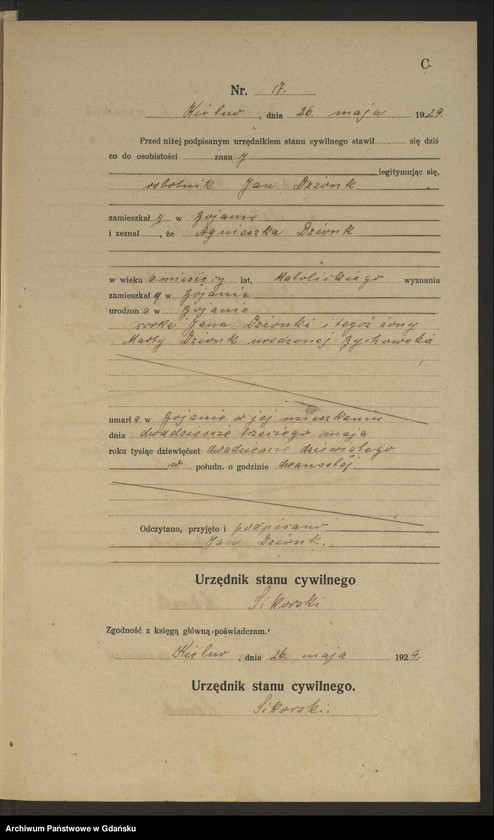 C
Nr. 17.
Kielno, dnia 26. maja 1929.
Przed niżej podpisanym urzędnikiem stanu cywilnego stawił się dziś
co do osobistości znany
legitymując się,
robotnik Jan Dzionk
zamieszkały w Zojanie
i zeznał, że Agnieszka Dzionk
w wieku 6 miesięcy lat, katolickiego wyznania
zamieszkał w Zojanie
urodzona w Zojanie
corka Jana Dzionki i tegoż żony
Marty Dzionk urodzonej Zychowska
umarła w Zojanie w jej mieszkaniu
dnia dwadzieście trzeciego maja
roku tysiąc dziewięćset dwadzieście dziewiątego
w połudn. o godzinie dwanastej
Odczytano, przyjęto i podpisano
Jan Dzionk.
Urzędnik stanu cywilnego
Sikorski
Zgodność z księgą główną poświadczam.
Kielno, dnia 26. maja 1929.
Urzędnik stanu cywilnego.
Sikorski.
Archiwum Państwowe w Gdańsku